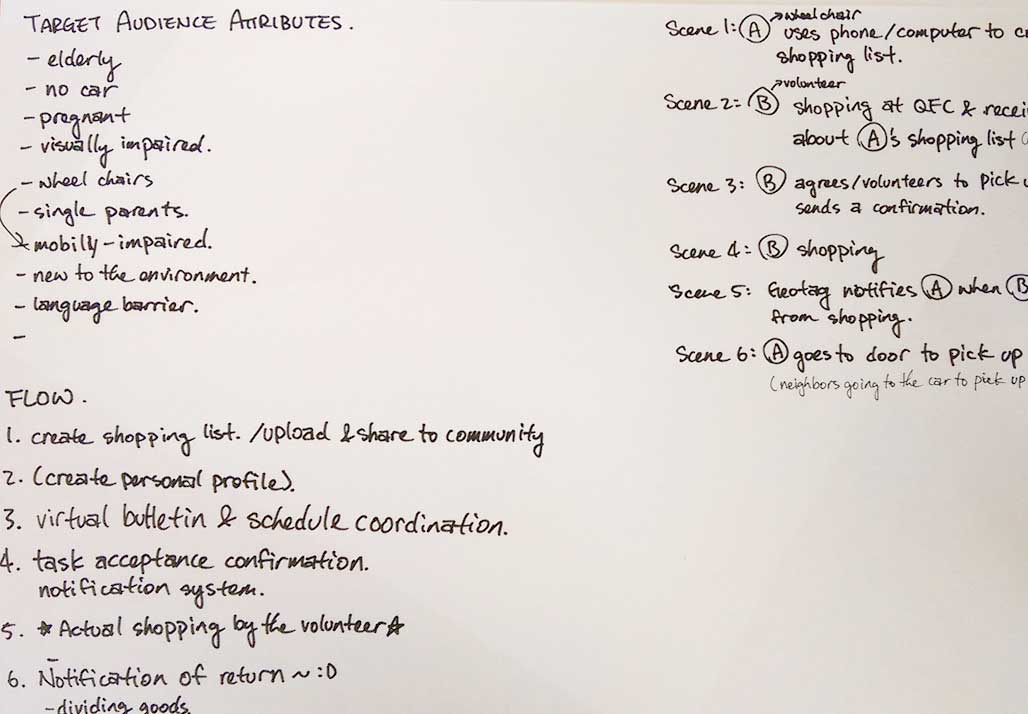 TARGET AUDIENCE ATRIBUTES.
- elderly
- no car
- pregnant
- visually impaired.
- wheel chairs
- single parents.
mobilly-impaired.
- new to the environment.
- language barrier.
-
FLOW.
1. create shopping list. /upload & share to community
2. (create personal profile).
3. virtual bulletin & schedule coordination.
4. task acceptance confirmation.
notification system.
5. ★ Actual shopping by the volunteer ★
6. Notification of return ~ :D
- dividing goods.
wheel chair
Scene 1: A uses phone/computer to
shopping list.
volunteer
Scene 2: B shopping at QFC &
about A's shopping list
Scene 3: B agrees/volunteers to pick
sends a confirmation.
Scene 4: B shopping
Scene 5: Geotag notifies A when B
from shopping.
Scene 6: A goes to door to pick up
(neighbors going to the car to pick up